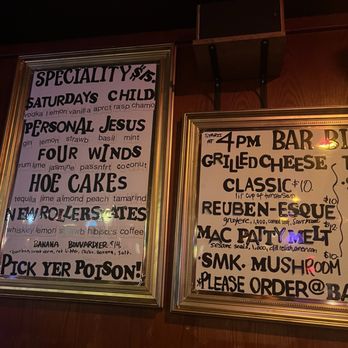 SPECIALITY $15.
SATURDAYS CHILD
vodka lemon vanilla aprct rasp chamo
PERSONAL JESUS
gin lemon strawb basil mint
FOUR WINDS
rum lime jasmine passnfrt coconut
HOE CAKES
tequila lime almond peach tamarind
NEW ROLLERSKATES
whiskey lemon strawb hibiscus coffee
BANANA BOULVARDIER $14
PICK YER POISON!
STARTS AT 4PM BAR BI
GRILLED CHEESE
CLASSIC $10.
REUBEN-ESQUE
MAC PATTY MELT $12
SMK. MUSHROOM $10
PLEASE ORDER @ BA